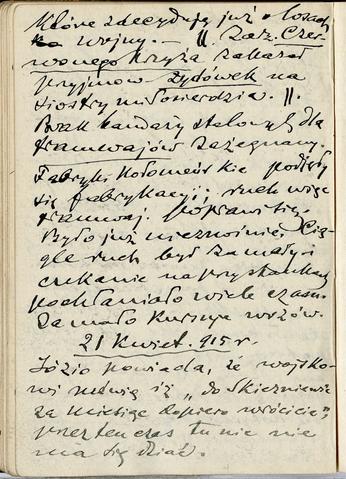 które zdecydują już o losach
wojny. — || Zarz. Czer-
wonego Krzyża zakazał
przyjmow. Żydówek na
siostry miłosierdzia. ||.
Brak bandaży stalowych dla
tramwajów zażegnany.
Fabryki Kołomeńskie podjęły
się fabrykacyi; ruch więc
tramwaj. poprawi się.
Było już nieznośnie. Cią-
gle ruch był za mały i
czekanie na przystankach
pochłaniało wiele czasu.
Za mało kursuje wozów.
21 Kwiet. 915 r.
Józio powiada, że wojsko-
wi mówią iż „do Skierniewic
za miesiąc dopiero wrócicie",
przez ten czas tu nic nie
ma się dziać.